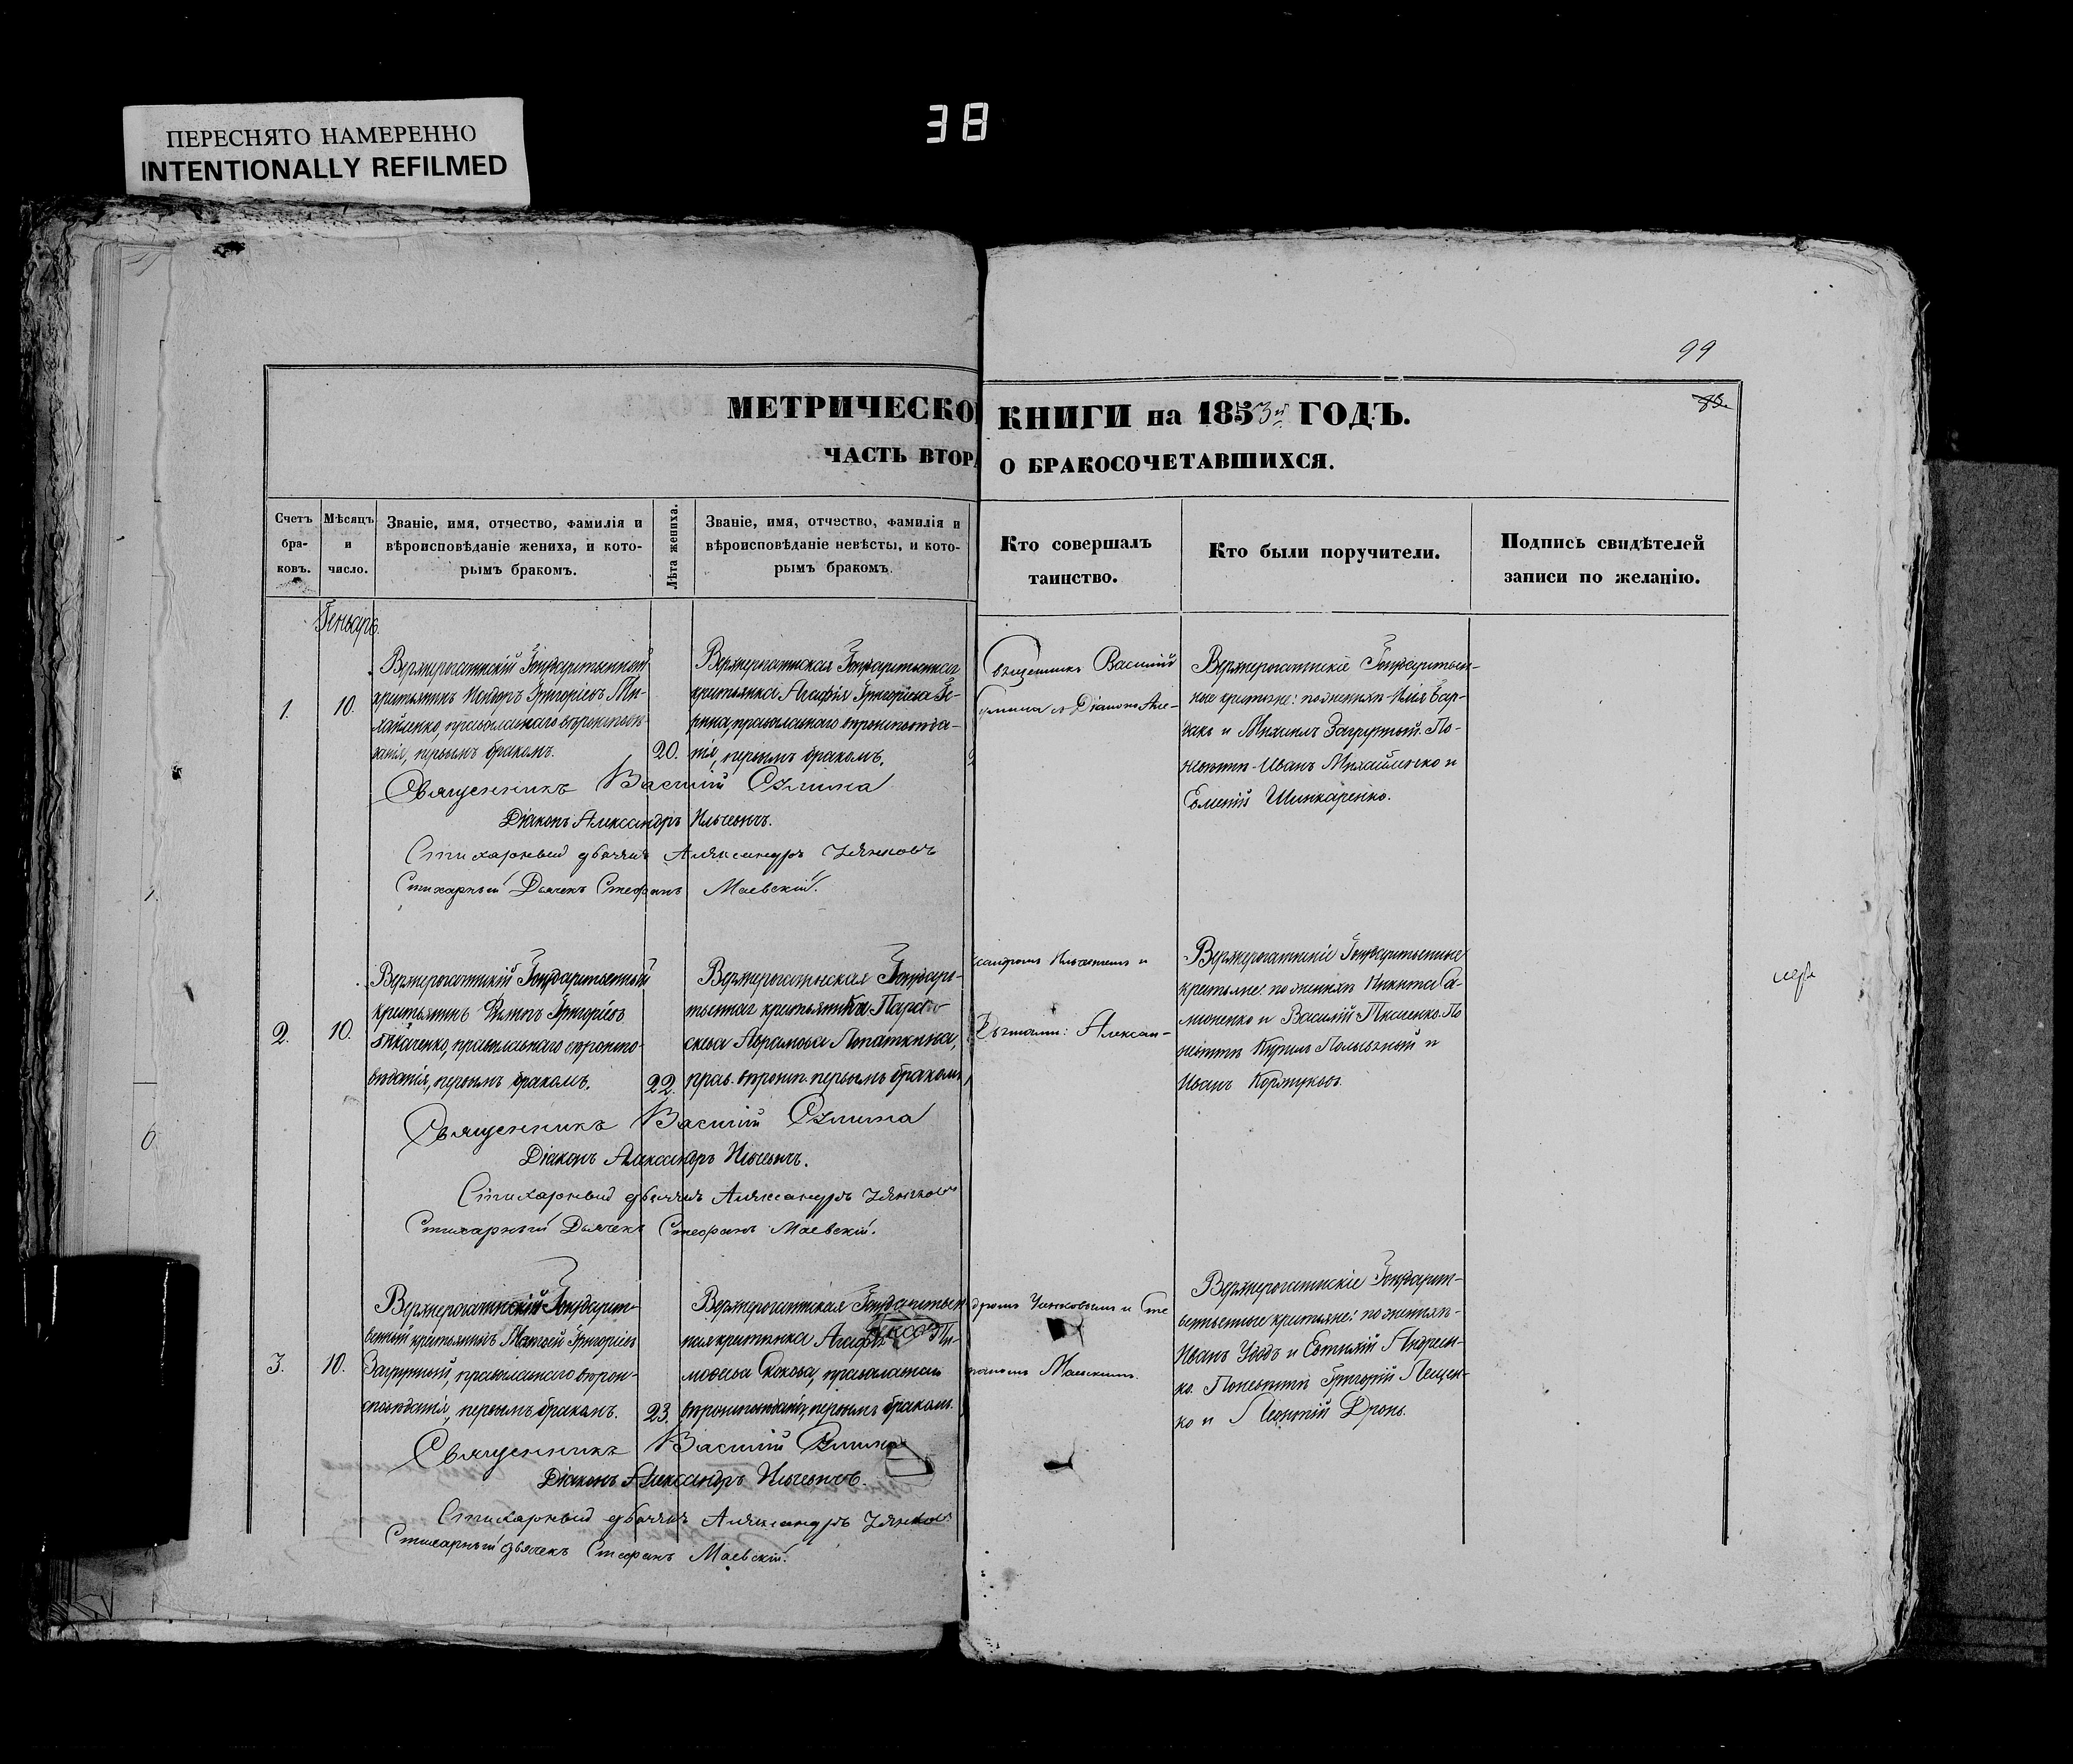 38
ПЕРЕСНЯТО НАМЕРЕННО
INTENTIONALLY REFILMED
99
МЕТРИЧЕСКО КНИГИ на 1853й ГОДЪ.
ЧАСТЬ ВТОРА О БРАКОСОЧЕТАВШИХСЯ.
Счетъ бра- ковъ.
Мѣсяцъ и число.
Званіе, имя, отчество, фамилія и
вѣроисповѣданіе жениха, и кото-
рымъ бракомъ.
Лѣта жениха.
Званіе, имя, отчество, фамилія и
вѣроисповѣданіе невѣсты, и кото-
рымъ бракомъ.
Кто совершалъ
таинство.
Кто были поручители.
Подпись свидѣтелей
записи по желанію.
Генварь.
1.
10.
Верхнерогатскій Государственной
крестьянинъ Исидоръ Григоріевъ Ми-
хайленко, православнаго вѣроисповѣ-
данія, первымъ бракомъ.
20.
Верхнерогатская Государственная
крестьянка Агафія Григоріева
православнаго вѣроисповѣда-
нія, первымъ бракомъ.
Священникъ Василій
и Діаконъ Але-
Верхнерогатскіе Государствен-
ные крестьяне: по женихѣ Илія
и Михаилъ Загрутный. По
невѣстѣ Иванъ Михайленко и
Евменій Шинкаренко.
Священникъ Василій
Діаконъ Александръ Ильчевичъ.
Стихарный дьячекъ Александръ
Стихарный Дьячекъ Стефанъ Маевскій.
2.
10.
Верхнерогатскій Государственный
крестьянинъ Филипъ Григоріевъ
Ткаченко, православнаго вѣроиспо-
вѣданія, первымъ бракомъ.
22.
Верхнерогатская Государс-
твенная крестьянка Парас-
скева Абрамова Лопаткина,
прав. вѣроисп. первымъ бракомъ
сандромъ Ильчевичемъ и
Дьячками: Алексан-
Верхнерогатскіе Государственные
крестьяне: по женихѣ Никита Са-
моненко и Василій Писменко. По
невѣстѣ Кирилъ и
Иванъ
Священникъ Василій
Діаконъ Александръ Ильчевичъ.
Стихарный дьячекъ Александръ
Стихарный Дьячекъ Стефанъ Маевскій.
3.
10.
Верхнерогатскій Государст-
венный крестьянинъ Матѳей Григоріевъ
Загрутный, православнаго вѣроис-
повѣданія, первымъ бракомъ.
23.
Верхнерогатская Государствен-
ная крестьянка Агафія Ти-
моѳеева православнаго
вѣроисповѣданія, первымъ бракомъ.
дромъ и Сте
фаномъ Маевскимъ.
Верхнерогатскіе Государст-
венные крестьяне: по женихѣ
Иванъ Удодъ и Евтихій Андреен-
ко. По невѣстѣ Григорій Лещен-
ко и Леонтій Дронь.
Священникъ Василій
Діаконъ Александръ Ильчевичъ.
Стихарный дьячекъ Александръ
Стихарный дьячекъ Стефанъ Маевскій.